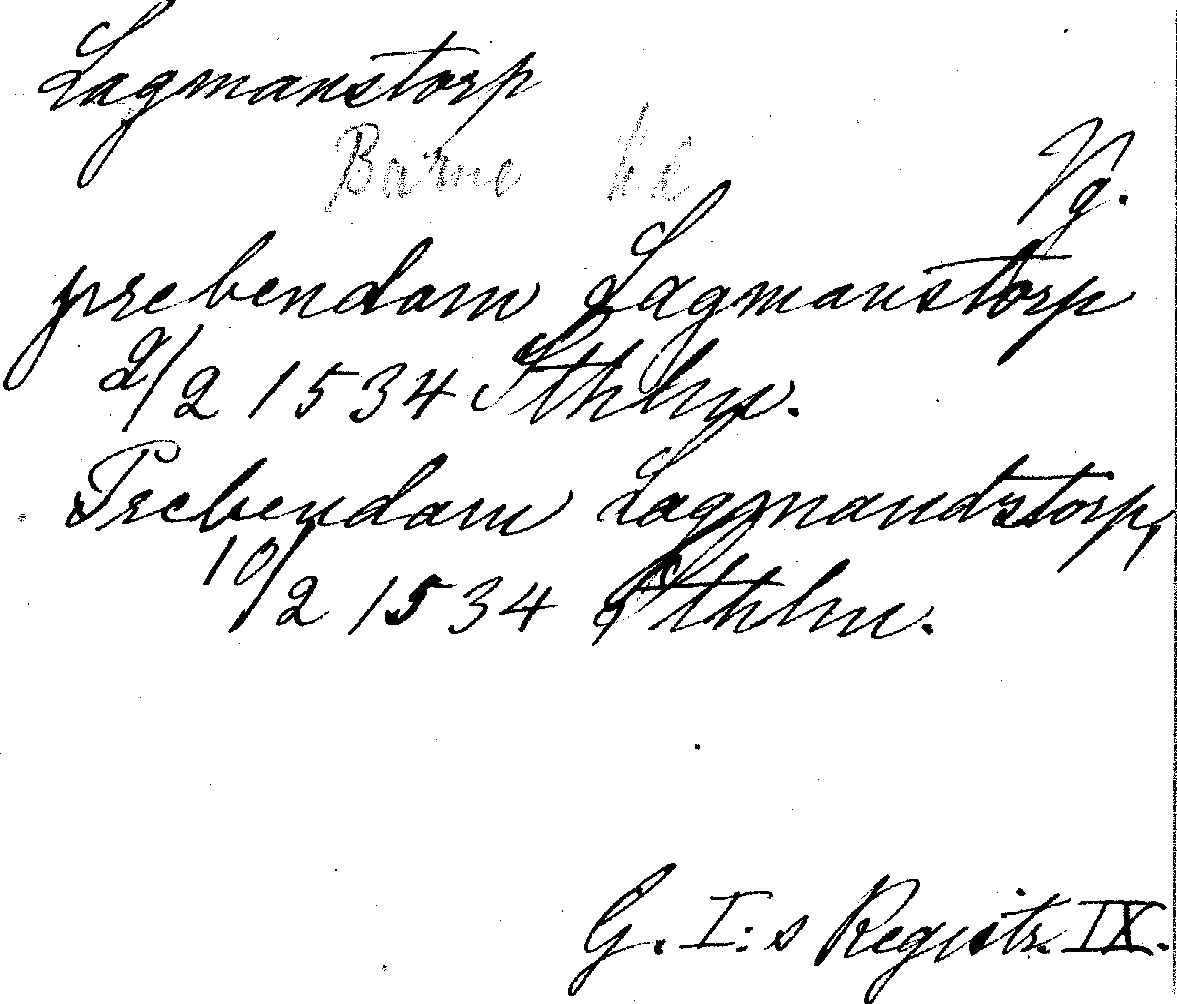 Lagmanstorp
Barne hd
Vg.
prebendam Lagmanstorp
2/2 1534 Sthlm.
Prebendam Lagmandztorp,
10/2 1534 Sthlm.
G. I:s Registr. IX.